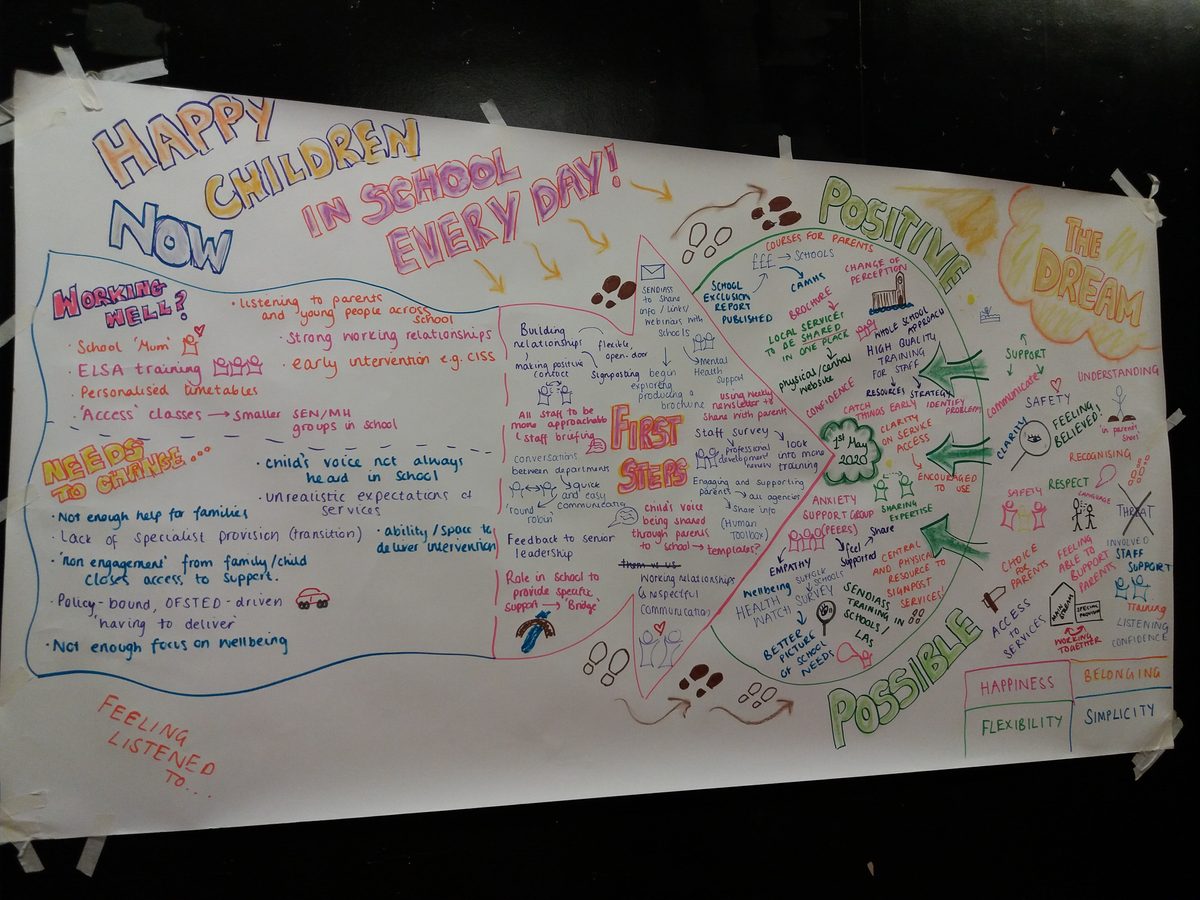 HAPPY
CHILDREN
IN SCHOOL
EVERY DAY!
NOW
WORKING
WELL?
• School 'Mum'
• ELSA training
• Personalised timetables
• 'Access' classes → smaller SEN/MH
groups in school
• listening to parents
and young people across
school
• Strong working relationships
• early intervention e.g. CISS
NEEDS
TO CHANGE...
• child's voice not always
heard in school
• unrealistic expectations of
services
• Not enough help for families
• Lack of specialist provision (transition)
• ability/space to
deliver intervention
• 'non engagement' from family/child
closes access to support.
• Policy-bound, OFSTED-driven
'having to deliver'
• Not enough focus on wellbeing
FEELING
LISTENED
TO...
FIRST
STEPS
Building
relationships
making positive
contact
flexible,
open-door
Signposting
All staff to be
more approachable
Staff briefing
conversations
between departments
quick
and easy
communication
'round
robin'
Feedback to senior
leadership
Role in school to
provide specific
support → 'Bridge'
SENDIASS
to share
info / links/
webinars with
schools
begin
exploring
producing a
brochure
Mental
Health
Support
using weekly
newsletter to
share with parents
Staff survey
Professional
development
look
into more
training
Engaging and supporting
parents
all agencies
Share info
(Human
Toolbox)
child's voice
being shared
through parents
to school → templates?
them vs us
Working relationships
& respectful
communication
POSITIVE
COURSES FOR PARENTS
£££ → SCHOOLS
CAMHS
SCHOOL
EXCLUSION
REPORT
PUBLISHED
BROCHURE
LOCAL SERVICES
TO BE SHARED
IN ONE PLACE
physical/central
website
CHANGE OF
PERCEPTION
WHOLE SCHOOL
APPROACH
HIGH QUALITY
TRAINING
FOR STAFF
RESOURCES
STRATEGY
CONFIDENCE
CATCH
THINGS EARLY
IDENTIFY
PROBLEMS
CLARITY
ON SERVICE
ACCESS
ENCOURAGED
TO USE
1st May
2020
SHARING
EXPERTISE
ANXIETY
SUPPORT GROUP
(PEERS)
Share
feel
supported
EMPATHY
Wellbeing
HEALTH
WATCH
SUFFOLK
SCHOOLS
SURVEY
BETTER
PICTURE
OF SCHOOL
NEEDS
SENDIASS
TRAINING IN
SCHOOLS /
LAs
CENTRAL
AND PHYSICAL
RESOURCE TO
SIGNPOST
SERVICES!
POSSIBLE
THE
DREAM
SUPPORT
communicate
SAFETY
UNDERSTANDING
CLARITY
FEELING
BELIEVED!
in parents
shoes
RECOGNISING
RESPECT
LANGUAGE
SAFETY
THREAT
INVOLVED
STAFF
SUPPORT
CHOICE
FOR
PARENTS
FEELING
ABLE TO
SUPPORT
PARENTS
ACCESS
TO
SERVICES
MAIN
STREAM
SPECIAL
PROVISION
WORKING
TOGETHER
Training
LISTENING
CONFIDENCE
HAPPINESS
BELONGING
FLEXIBILITY
SIMPLICITY